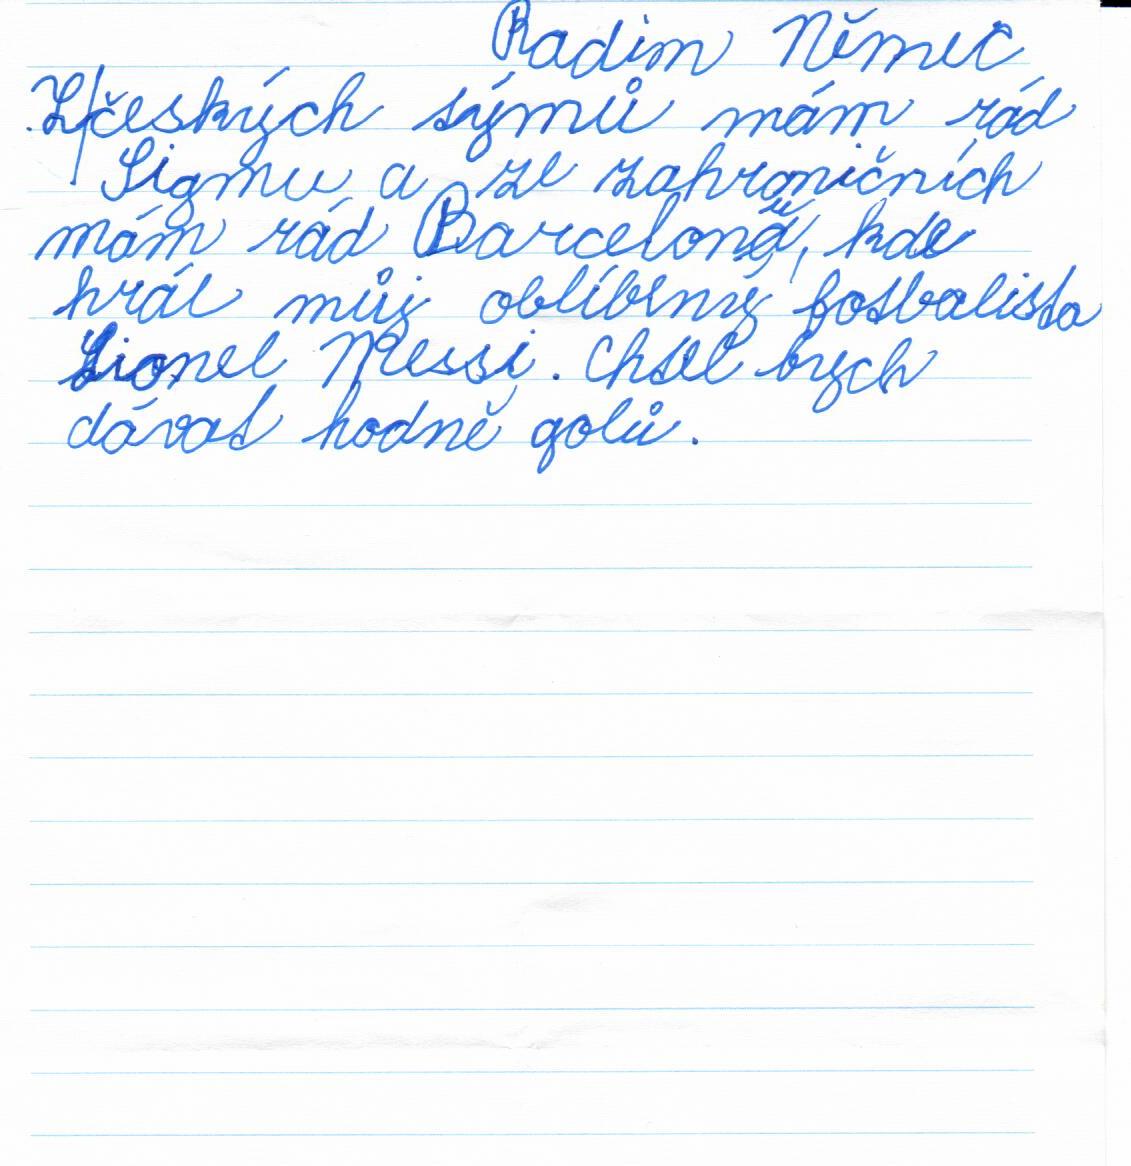 Radim Němec
Z českých týmů mám rád
Sigmu a ze zahroničních
mám rád Barcelonu, kde
hrál můj oblíbený fotbalista
Lionel Messi. Chtěl bych
dávat hodně golů.